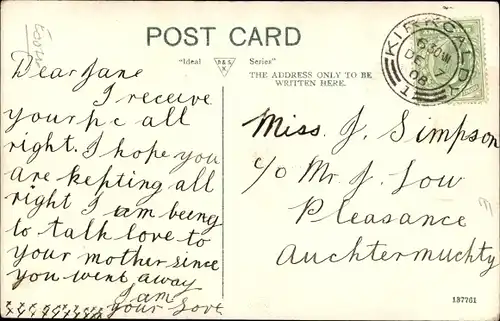 POST CARD
"Ideal Series"
THE ADDRESS ONLY TO BE
WRITTEN HERE.
KIRKCALDY
6 30 PM
DE 7
08
1
Dear Jane
I receive
your p c all
right. I hope you
are kepting all
right I am being
to talk love to
your mother since
you went away
I am
your Love
x x x x x x x x x x
Miss. J. Simpson
c/o Mr. J. Low
Pleasance
Auchtermuchty
137761